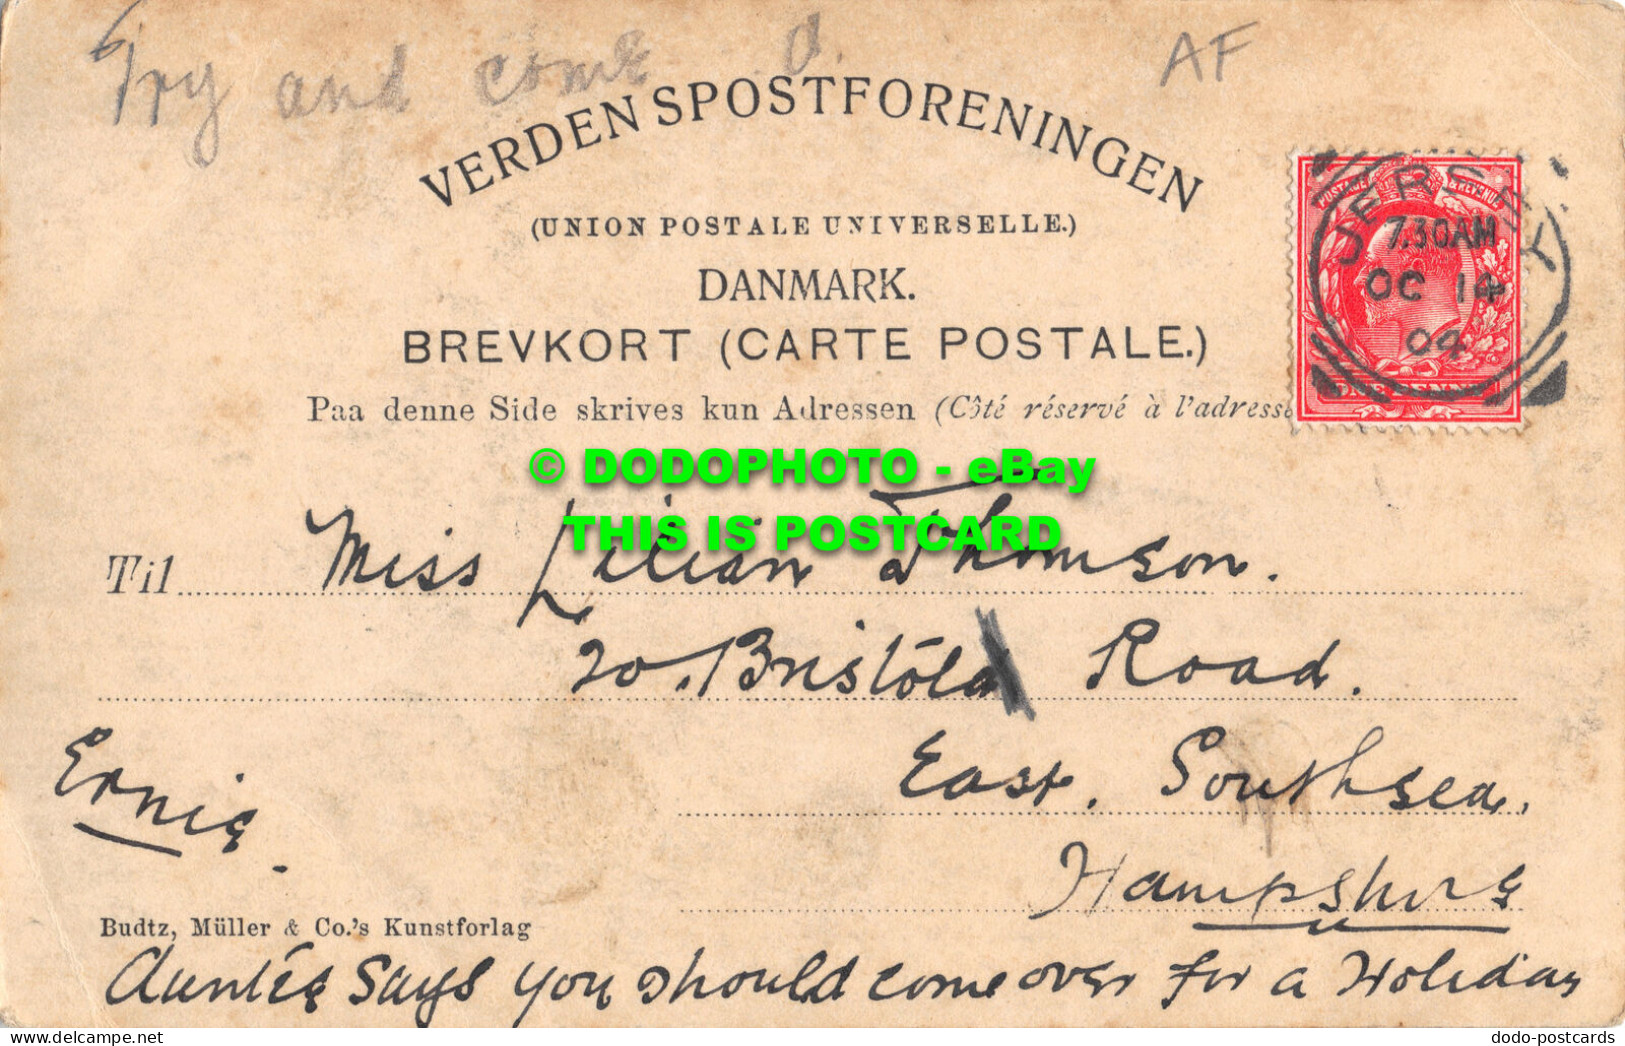 Try and come
AF
VERDENSPOSTFORENINGEN
(UNION POSTALE UNIVERSELLE.)
DANMARK.
BREVKORT (CARTE POSTALE.)
Paa denne Side skrives kun Adressen (Côté réservé à l'adresse
POSTAGE & REVENUE
JERSEY
7.30AM
OC 14
04
ONE PENNY
© DODOPHOTO - eBay
THIS IS POSTCARD
Til Miss Lilian Thomson.
20. Bristol Road.
East. Southsea,
Ernie
Hampshire
Budtz, Müller & Co.'s Kunstforlag
Auntie says you should come over for a Holiday
dodo-postcards
delcampe.net